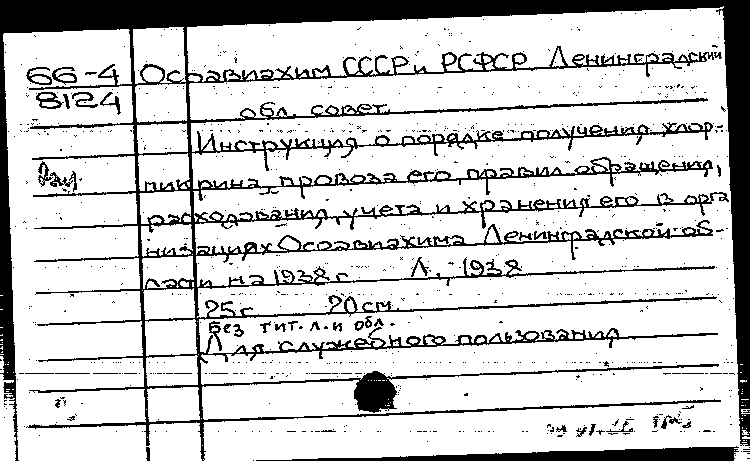 66-4 Осоавиахим СССР и РСФСР Ленинградский
8124
обл. совет.
Инструкция о порядке получения хлор-
пикрина, провоза его, правил обращения,
расходования, учета и хранения его в орга
низациях Осоавиахима Ленинградской об-
ласти на 1938 г. Л., 1938
25 с. 20 см.
Без тит. л. и обл.
Для служебного пользования